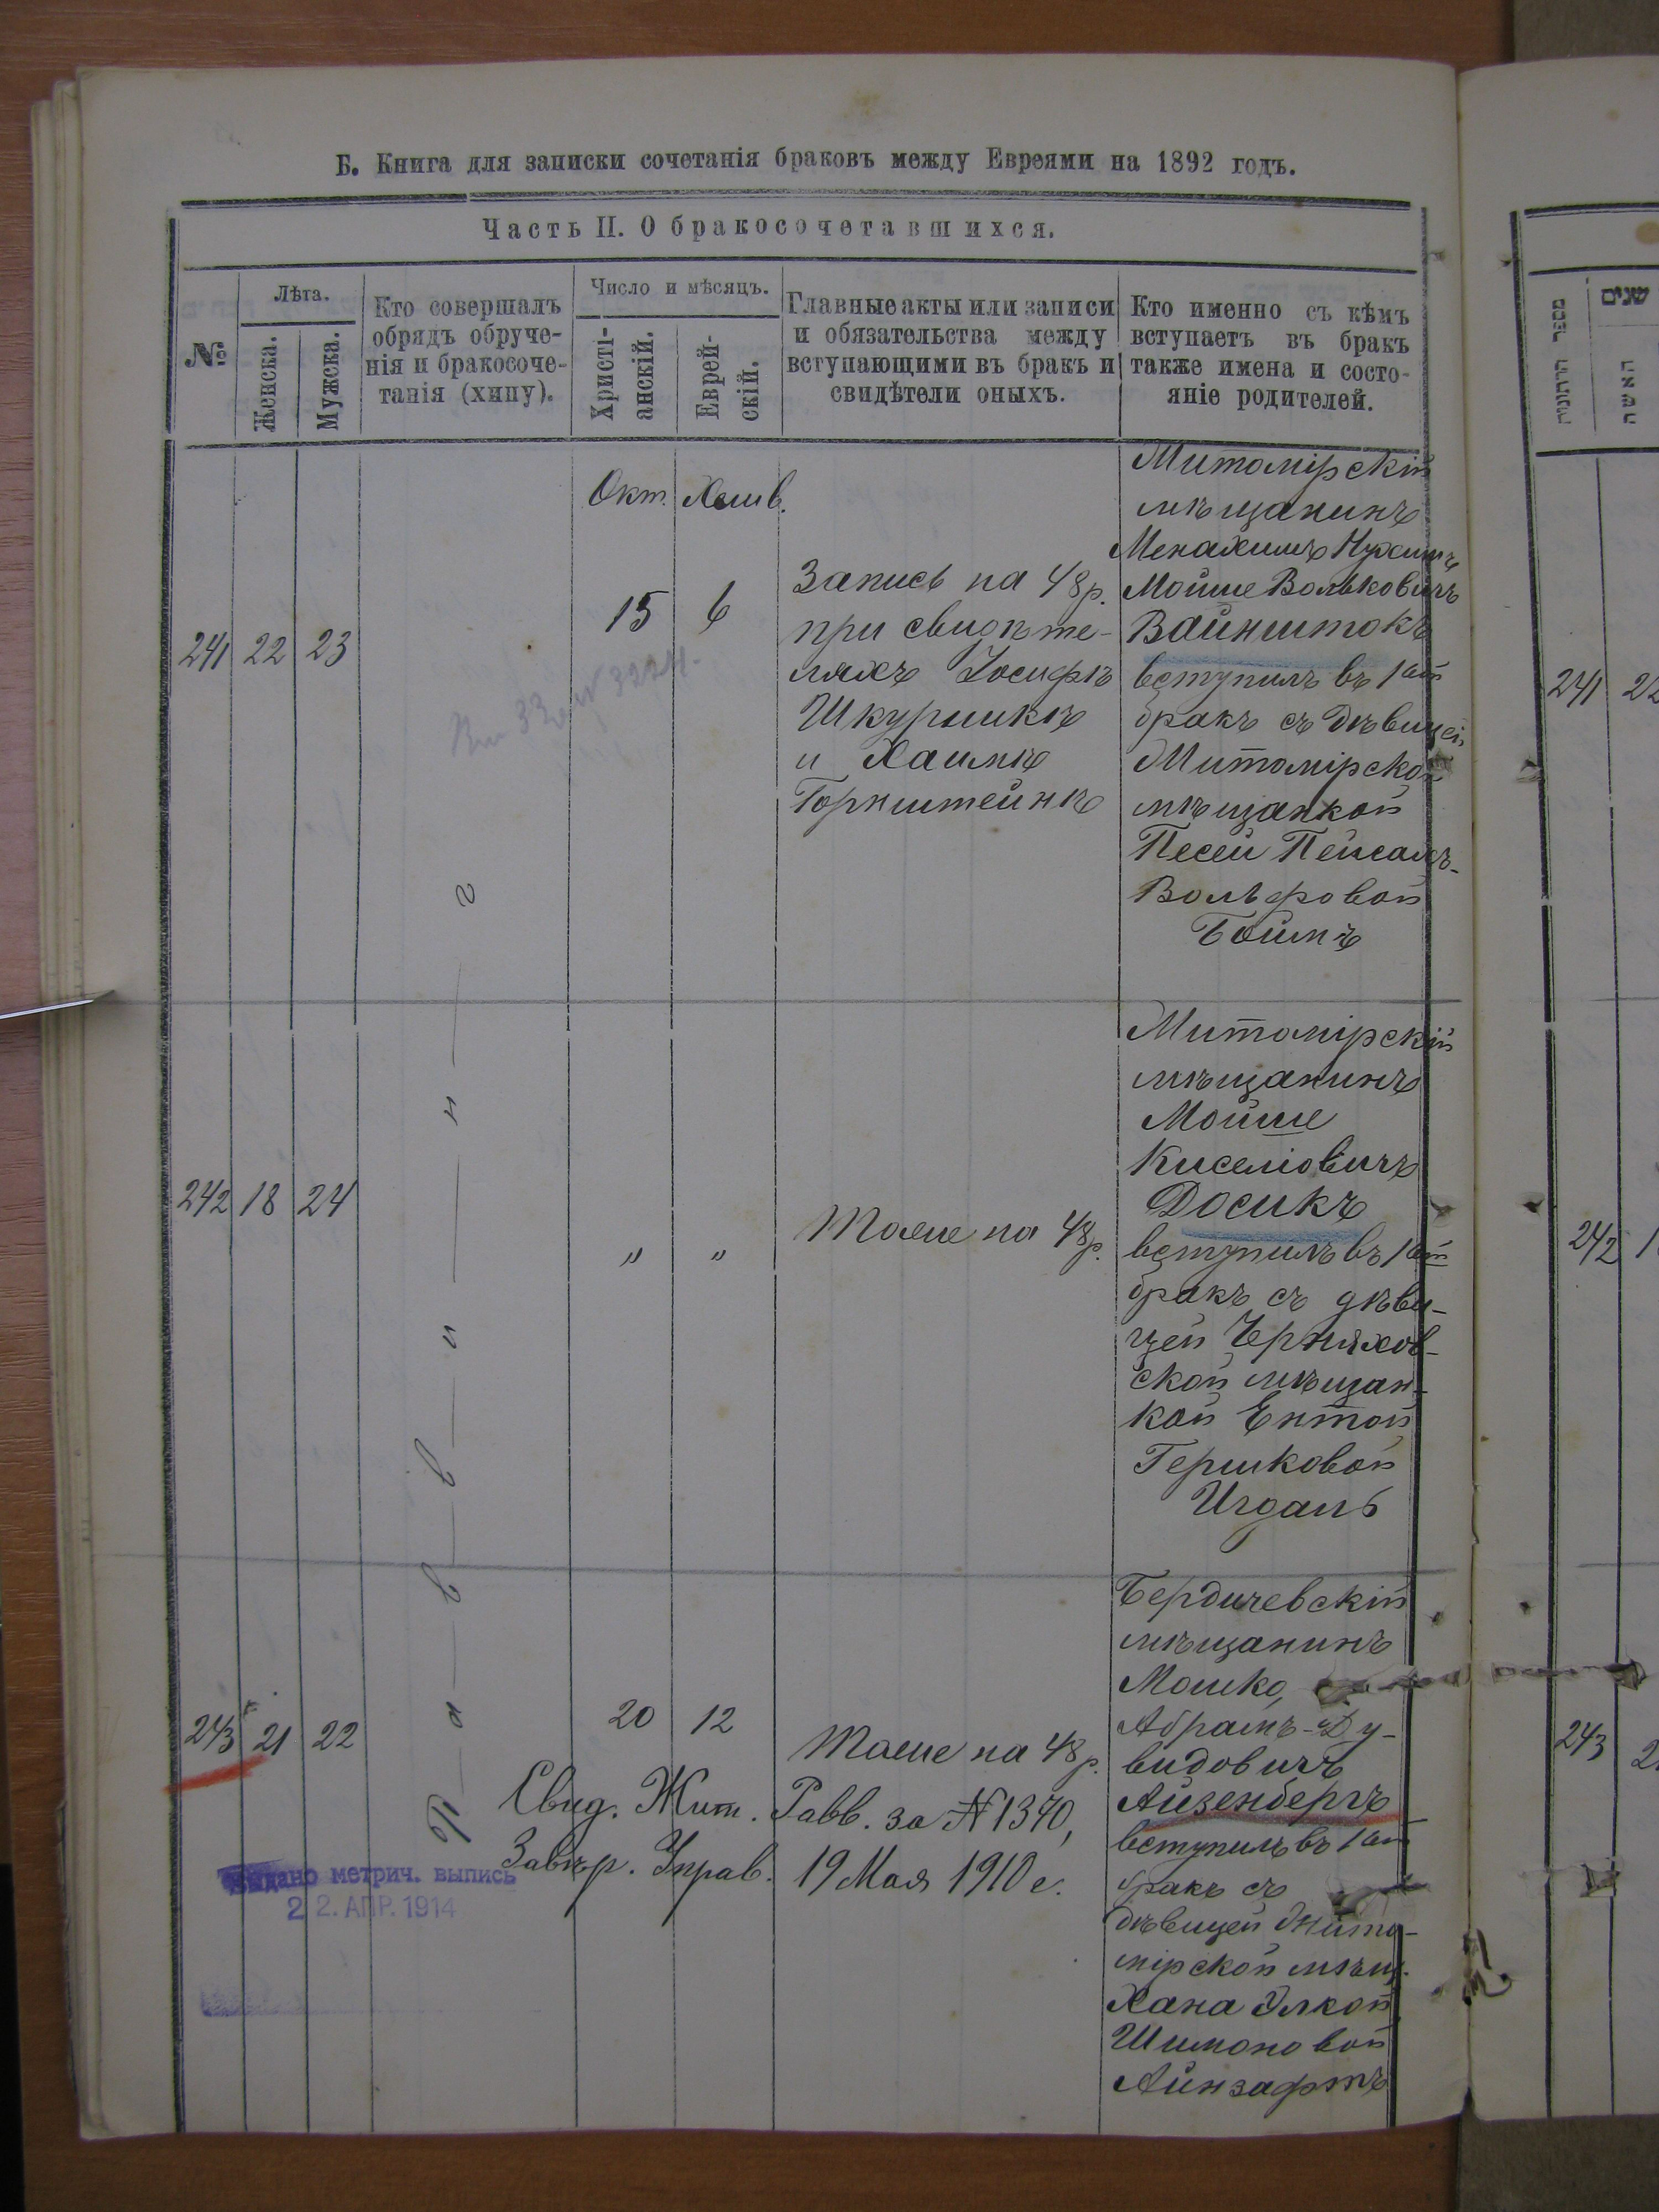 Б. Книга для записки сочетанія браковъ между Евреями на 1892 годъ.
Часть II. О бракосочетавшихся.
№
Лѣта.
Женска.
Мужска.
Кто совершалъ
обрядъ обруче-
нія и бракосоче-
танія (хипу).
Число и мѣсяцъ.
Христі-
анскій.
Еврей-
скій.
Главные акты или записи
и обязательства между
вступающими въ бракъ и
свидѣтели оныхъ.
Кто именно съ кѣмъ
вступаетъ въ бракъ
также имена и состо-
яніе родителей.
Окт. Хешв.
241 22 23
15 6
Запись на 48 р.
при свидѣте-
ляхъ Іосифѣ
Шкурникѣ
и Хаимѣ
Горнштейнѣ
Житомірскій
мѣщанинъ
Менахимъ Нухимъ
Мойше Вольковичъ
Вайнштокъ
вступилъ въ 1ый
бракъ съ дѣвицей
Житомірской
мѣщанкой
Песей Пейсахъ-
Вольфовой
Боймъ
242 18 24
" "
Тоже на 48 р.
Житомірскій
мѣщанинъ
Мойше
Киселіовичъ
Досикъ
вступилъ въ 1ый
бракъ съ дѣви-
цей Черняхов-
ской мѣщан-
кой Ентой
Гершковой
Игдалъ
243 21 22
20 12
Тоже на 48 р.
Бердичевскій
мѣщанинъ
Мошко,
Абрамъ-Ду-
видовичъ
Айзенбергъ
вступилъ въ 1ый
бракъ съ
дѣвицей Жито-
мірской мѣщ.
Хана Элкой
Шимоновой
Айнзафтъ
Р а в в и н г
Свид. Жит. Равв. за № 1370,
Завѣр. Управ. 19 Мая 1910 г.
Выдано метрич. выпись
22. АПР. 1914
מספר הזיווג
שנים
האשה
241 22
242 1
243 2